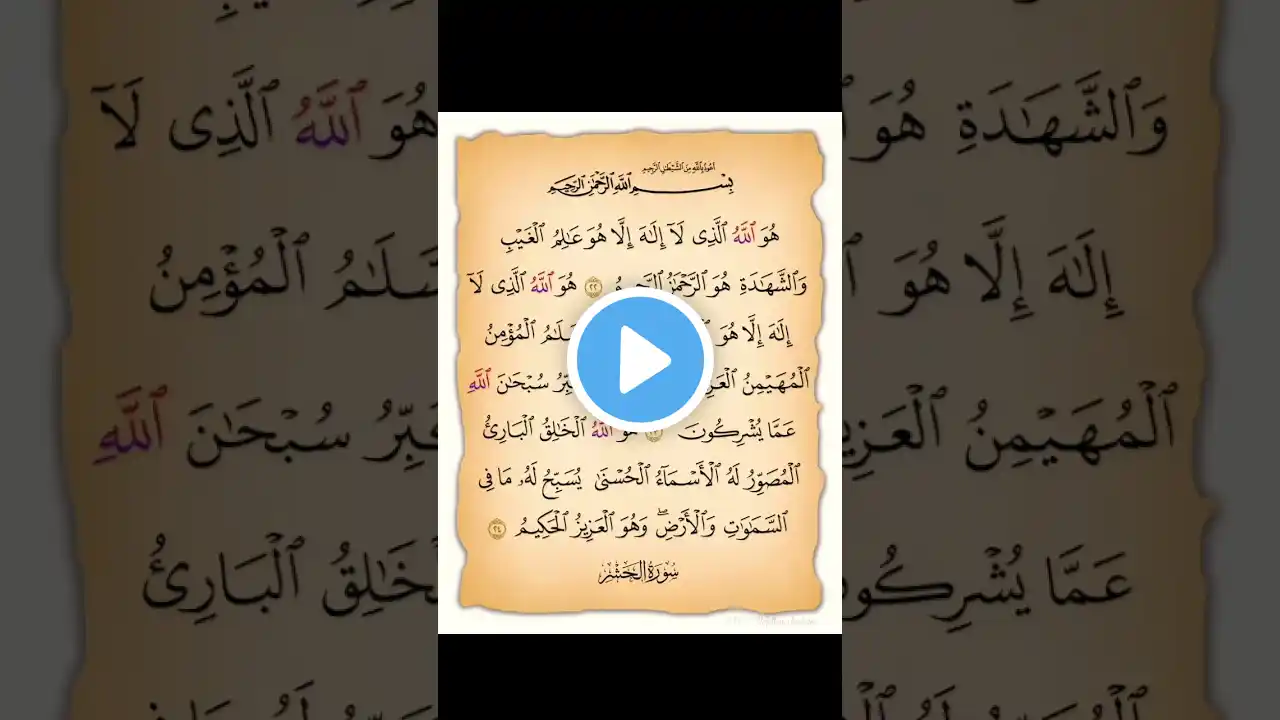 أعوذ بالله من الشيطان الرجيم
بِسْمِ اللَّهِ الرَّحْمَٰنِ الرَّحِيمِ
هُوَ ٱللَّهُ ٱلَّذِى لَآ إِلَٰهَ إِلَّا هُوَ عَٰلِمُ ٱلْغَيْبِ
وَٱلشَّهَٰدَةِ هُوَ ٱلرَّحْمَٰنُ ٱلرَّحِيمُ ٢٢ هُوَ ٱللَّهُ ٱلَّذِى لَآ
إِلَٰهَ إِلَّا هُوَ ٱلْمُؤْمِنُ
ٱلْمُهَيْمِنُ سُبْحَٰنَ ٱللَّهِ
عَمَّا يُشْرِكُونَ هُوَ ٱللَّهُ ٱلْخَٰلِقُ ٱلْبَارِئُ
ٱلْمُصَوِّرُ لَهُ ٱلْأَسْمَآءُ ٱلْحُسْنَىٰ يُسَبِّحُ لَهُۥ مَا فِى
ٱلسَّمَٰوَٰتِ وَٱلْأَرْضِ ۖ وَهُوَ ٱلْعَزِيزُ ٱلْحَكِيمُ ٢٤
سُورَةُ الحَشْرِ